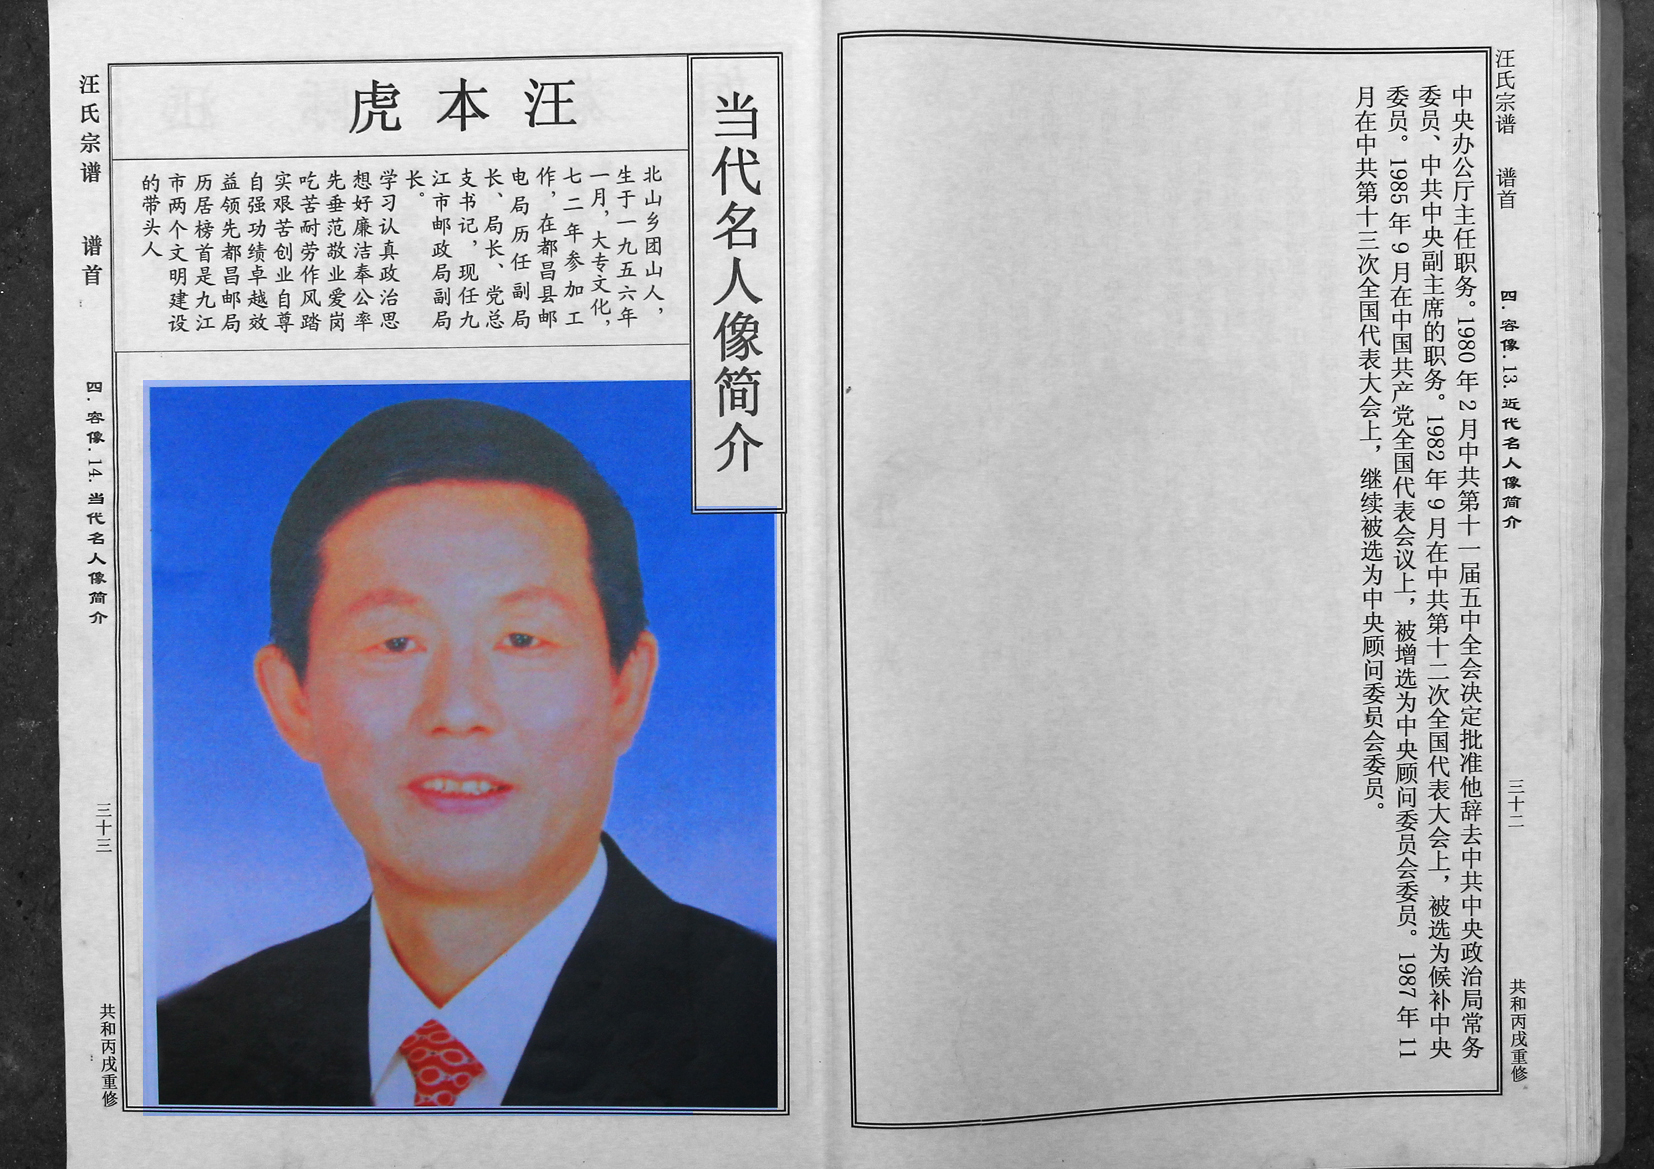 汪氏宗谱 谱首
四.容像.13.近代名人像简介
三十二
共和丙戌重修
中央办公厅主任职务。1980年2月中共第十一届五中全会决定批准他辞去中共中央政治局常务
委员、中共中央副主席的职务。1982年9月在中共第十二次全国代表大会上，被选为候补中央
委员。1985年9月在中国共产党全国代表会议上，被增选为中央顾问委员会委员。1987年11
月在中共第十三次全国代表大会上，继续被选为中央顾问委员会委员。
当代名人像简介
汪本虎
北山乡团山人，
生于一九五六年
一月，大专文化，
七二年参加工
作，在都昌县邮
电局历任副局
长、局长、党总
支书记，现任九
江市邮政局副局
长。
学习认真政治思
想好廉洁奉公率
先垂范敬业爱岗
吃苦耐劳作风踏
实艰苦创业自尊
自强功绩卓越效
益领先都昌邮局
历居榜首是九江
市两个文明建设
的带头人
汪氏宗谱 谱首
四.容像.14.当代名人像简介
三十三
共和丙戌重修